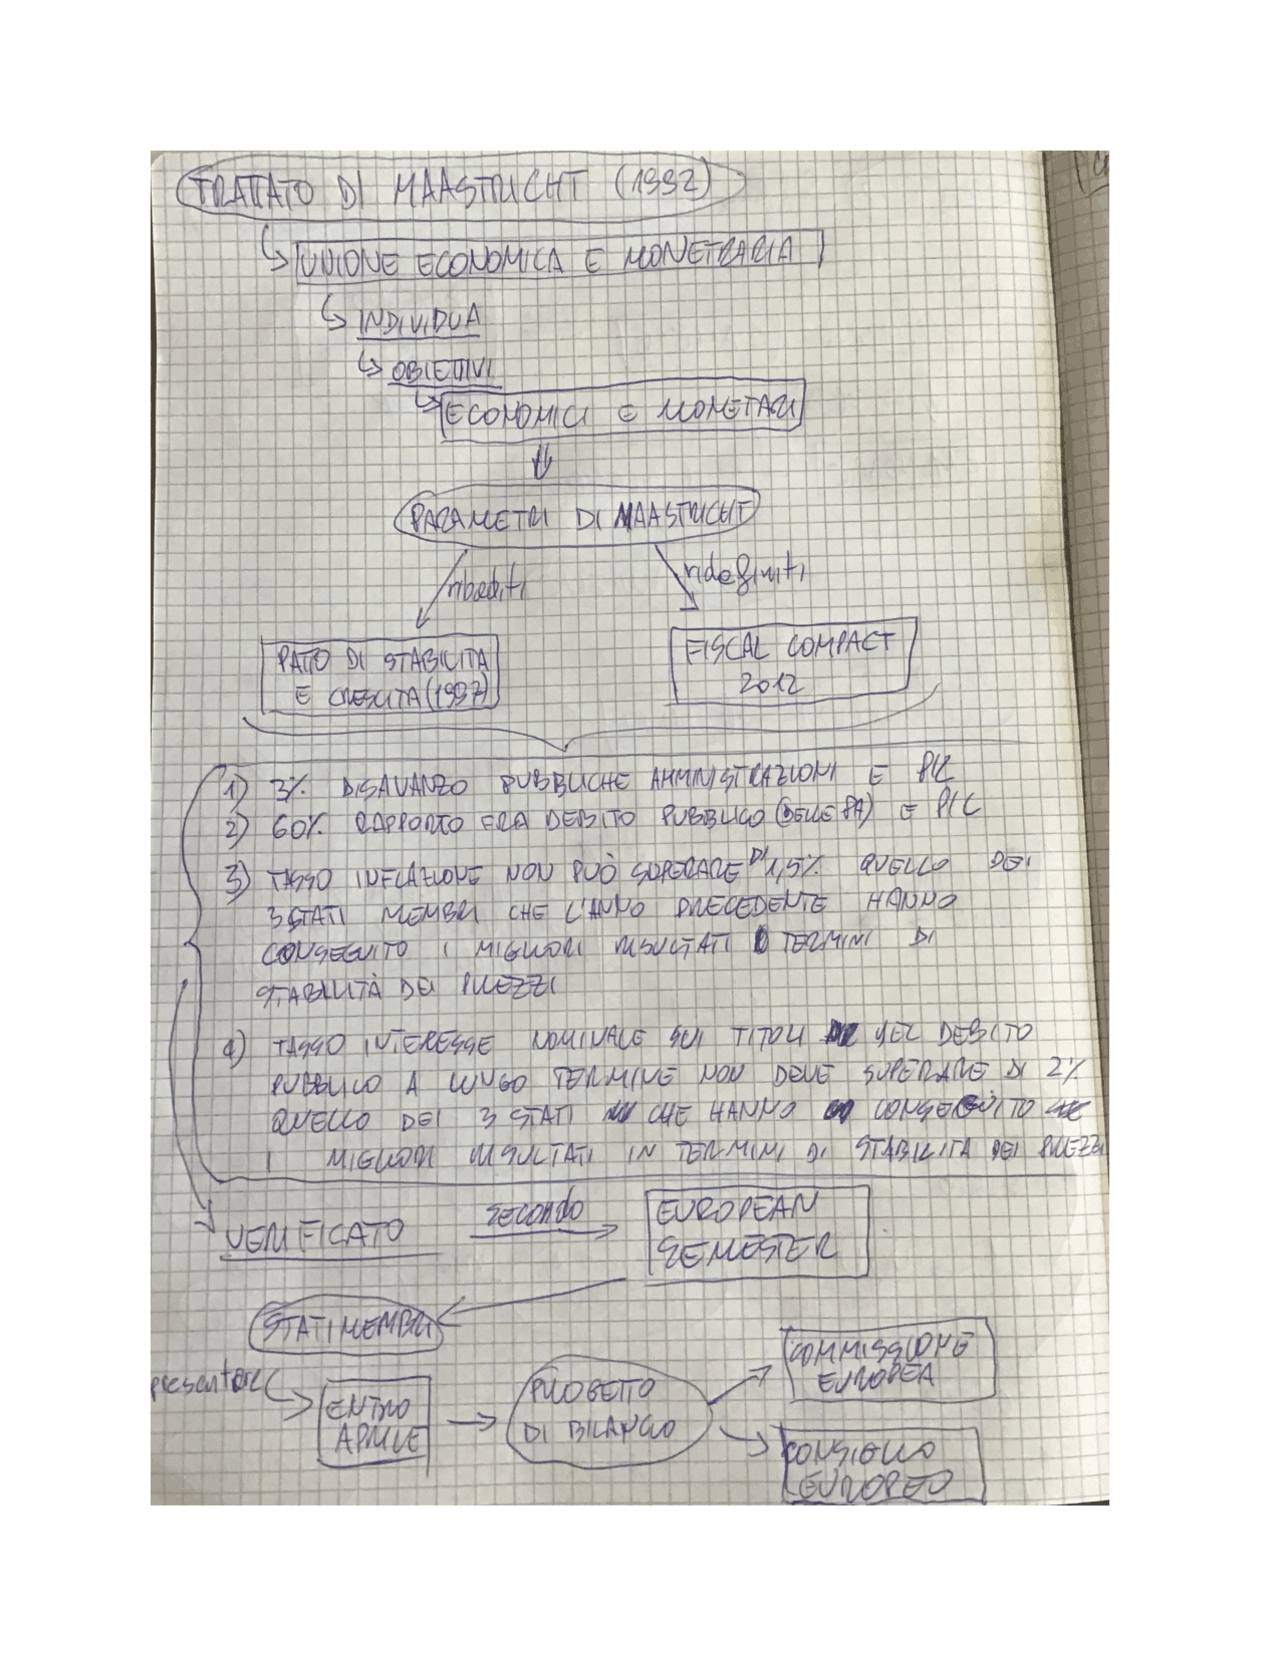 TRATTATO DI MAASTRICHT (1992)
UNIONE ECONOMICA E MONETRARIA
INDIVIDUA
OBIETTIVI
ECONOMICI E MONETARI
PARAMETRI DI MAASTRICHT
ribaditi
ridefiniti
PATTO DI STABILITA
E CRESCITA (1997)
FISCAL COMPACT
2012
1) 3% DISAVANZO PUBBLICHE AMMINISTRAZIONI E PIL
2) 60% RAPPORTO FRA DEBITO PUBBLICO (DELLE PA) E PIL
3) TASSO INFLAZIONE NON PUÒ SUPERARE DI 1,5% QUELLO DEI
3 STATI MEMBRI CHE L'ANNO PRECEDENTE HANNO
CONSEGUITO I MIGLIORI RISULTATI TERMINI DI
STABILITÀ DEI PREZZI
4) TASSO INTERESSE NOMINALE SUI TITOLI DEL DEBITO
PUBBLICO A LUNGO TERMINE NON DEVE SUPERARE DI 2%
QUELLO DEI 3 STATI CHE HANNO CONSEGUITO
I MIGLIORI RISULTATI IN TERMINI DI STABILITA DEI PREZZI
VERIFICATO secondo EUROPEAN
SEMESTER
STATI MEMBRI
presentare
ENTRO
APRILE
PROGETTO
DI BILANCIO
COMMISSIONE
EUROPEA
CONSIGLIO
EUROPEO